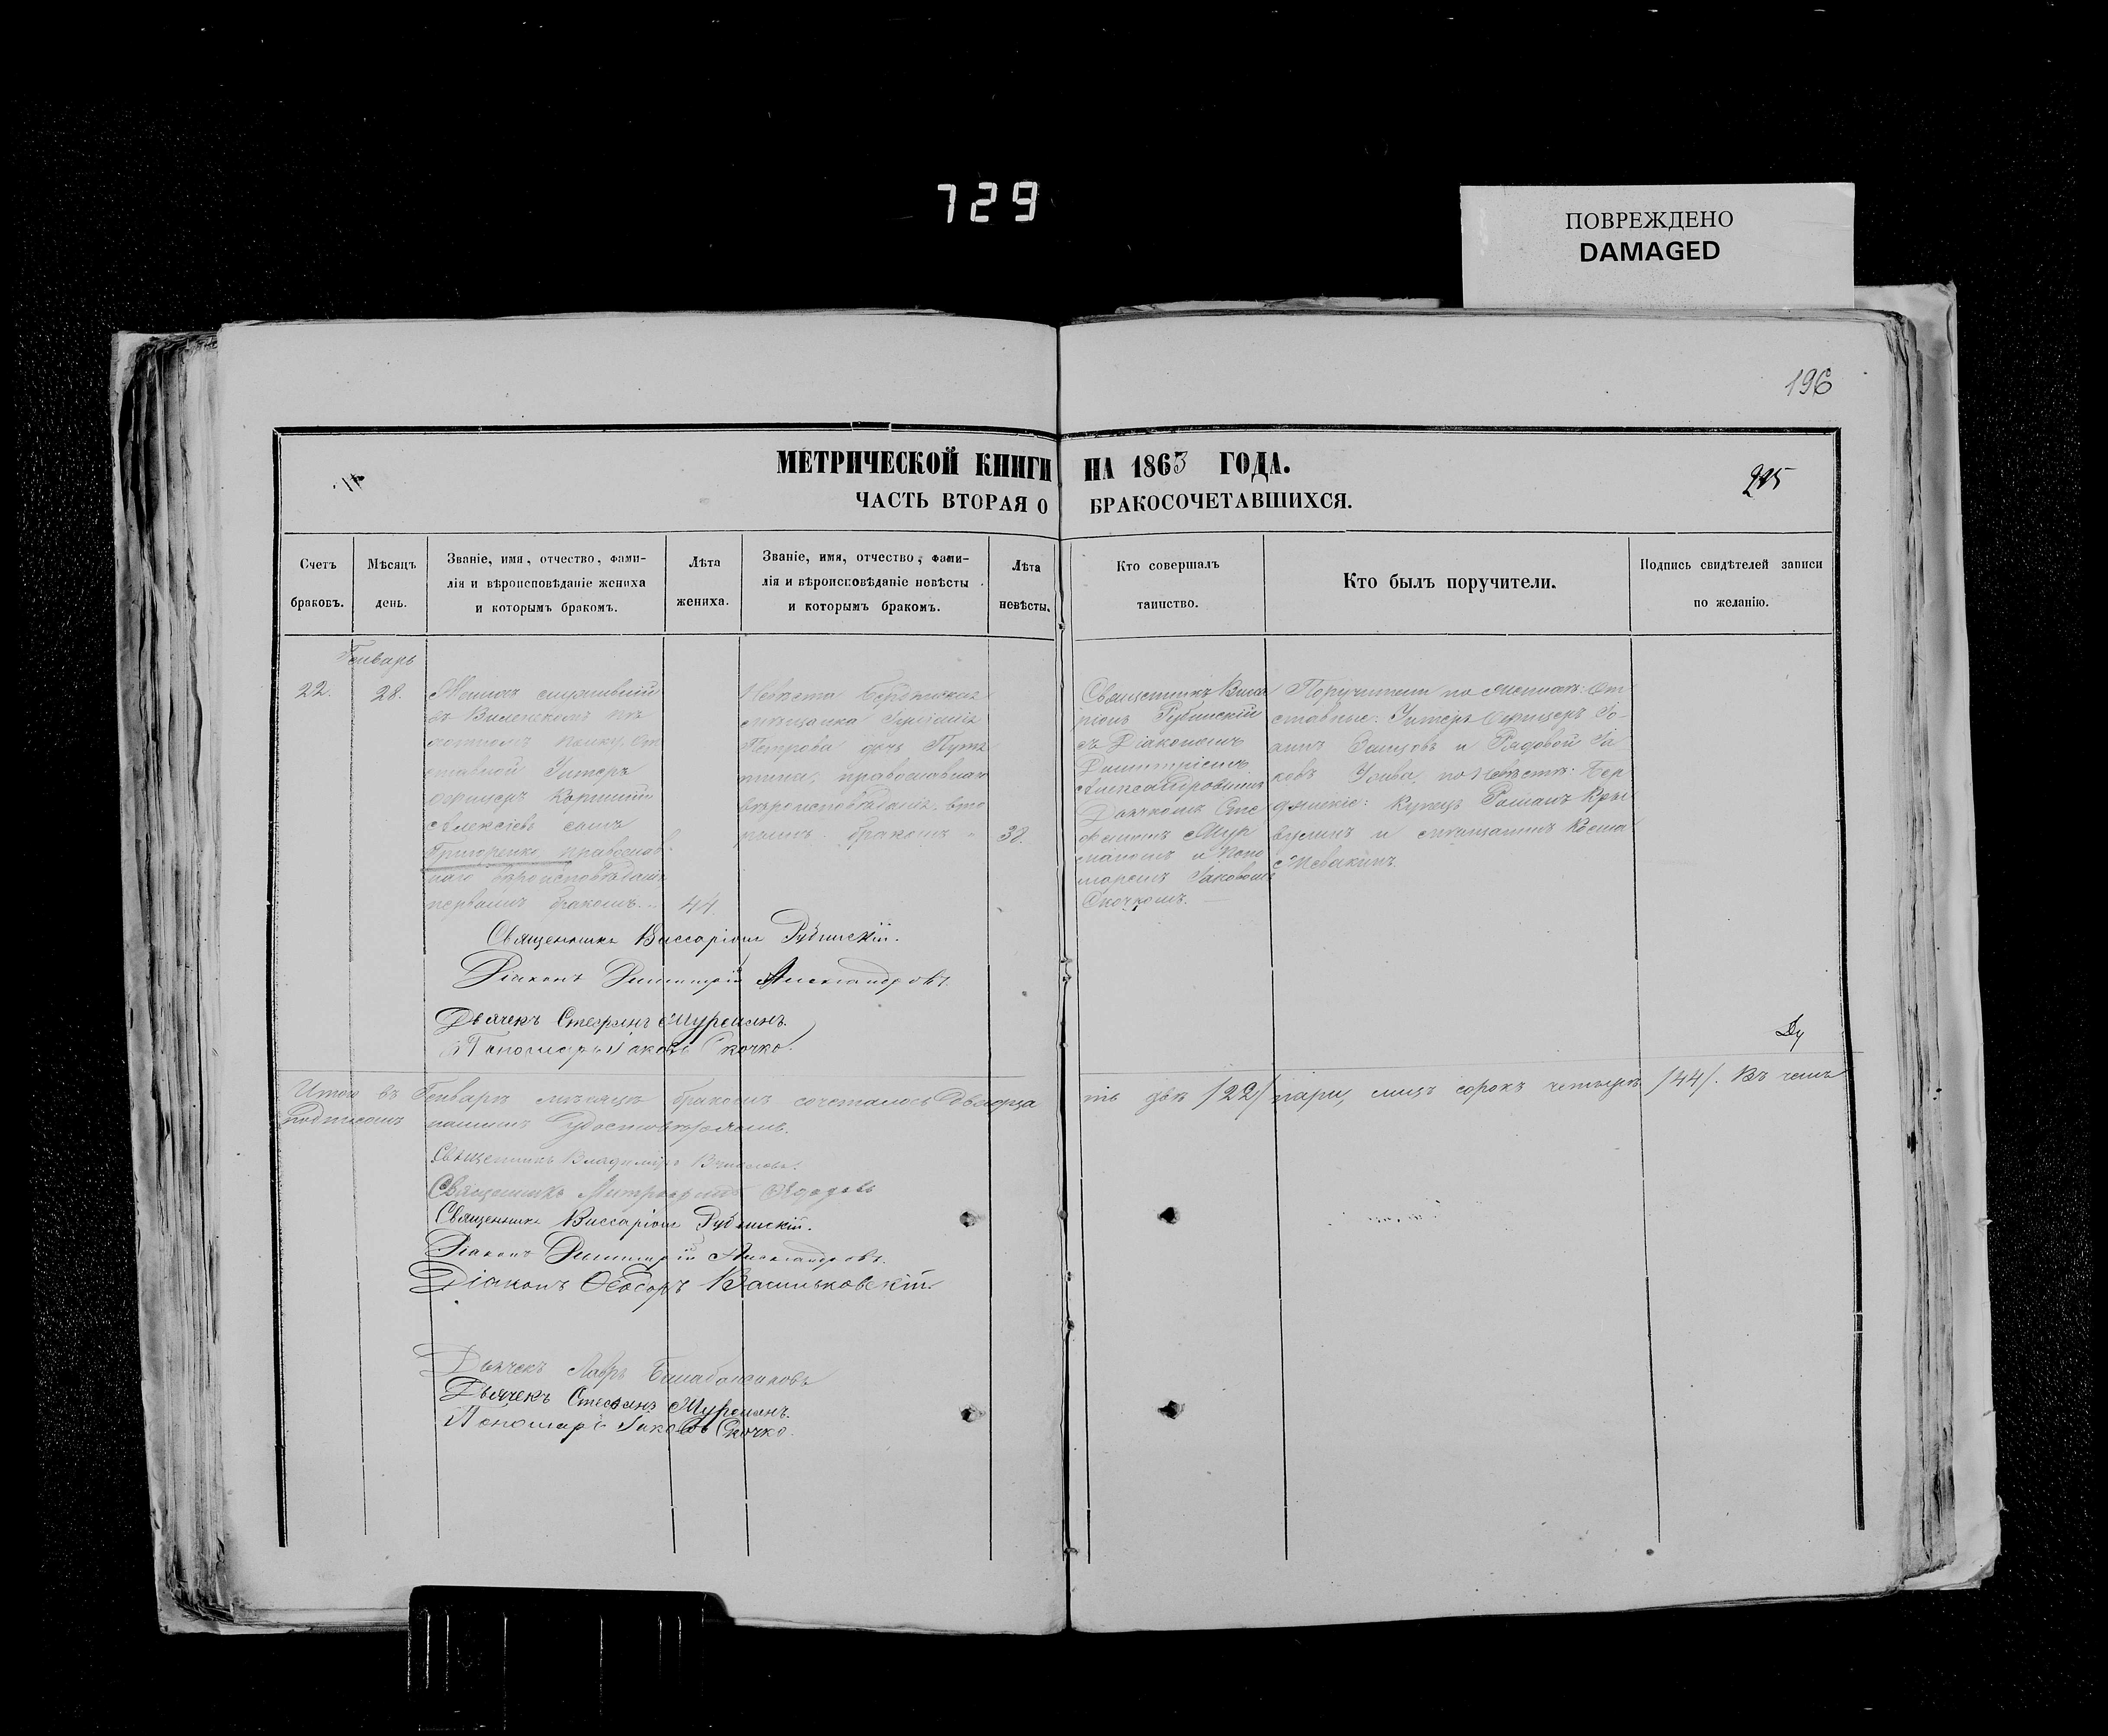 729
ПОВРЕЖДЕНО
DAMAGED
196
МЕТРИЧЕСКОЙ КНИГИ НА 1863 ГОДА.
ЧАСТЬ ВТОРАЯ О БРАКОСОЧЕТАВШИХСЯ.
Счетъ
браковъ.
Мѣсяцъ
день.
Званіе, имя, отчество, фами-
лія и вѣроисповѣданіе жениха
и которымъ бракомъ.
Лѣта
жениха.
Званіе, имя, отчество, фами-
лія и вѣроисповѣданіе невѣсты
и которымъ бракомъ.
Лѣта
невѣсты.
Кто совершалъ
таинство.
Кто былъ поручители.
Подпись свидѣтелей записи
по желанію.
Генварь
22.
28.
Женихъ служившій
въ Виленскомъ пѣ
хотномъ полку, От
ставной Унтеръ
Офицеръ
Алексіевъ сынъ
Григоренко православ
наго вѣроисповѣданія
первымъ бракомъ.
44.
Невѣста Бердянская
мѣщанка
Петрова дочь
православнаго
вѣроисповѣданія, вто
рымъ бракомъ
38.
Священникъ Висса
ріонъ Рубинскій
съ Діакономъ
Димитріемъ
Александровымъ
Дьячкомъ Сте
фаномъ
и Поно
маремъ Іаковомъ
Скочкомъ.
Поручители по женихѣ: От
ставные: Унтеръ Офицеръ Іо
аннъ и Рядовой Іа
ковъ по невѣстѣ: Бер
дянскіе: Купецъ Романъ Кры
вулинъ и мѣщанинъ Козма
Священникъ Виссаріонъ Рубинскій.
Діаконъ Димитрій Александровъ.
Дьячекъ Стефанъ
Пономарь Іаковъ Скочко.
Итого въ Генварѣ мѣсяцѣ бракомъ сочеталось Двадца
ть двѣ /22/ пары, лицъ сорокъ четыре /44/. Въ чемъ
подписомъ нашимъ удостовѣряемъ.
Священникъ Владиміръ
Священникъ Митрофанъ
Священникъ Виссаріонъ Рубинскій.
Діаконъ Димитрій Александровъ.
Діаконъ Ѳеодоръ Васильковскій.
Дьячекъ Лавръ
Дьячекъ Стефанъ
Пономарь Іаковъ Скочко.